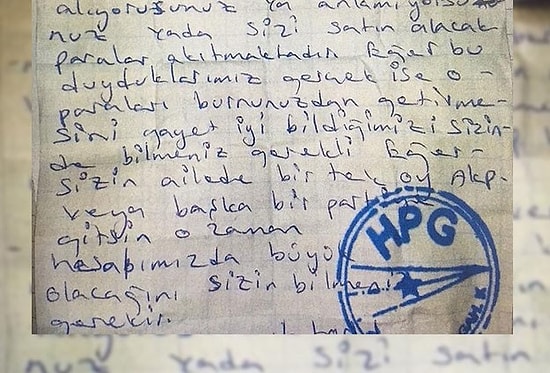 alıyorsunuz ya anlamıyorsu-
nuz yada sizi satın alacak
paralar akıtmaktadır Eğer bu
duyduklarımız gerçek ise o-
paraları burnunuzdan getirme-
sini gayet iyi bildiğimizi sizin-
de bilmeniz gerekli Eğer-
sizin ailede bir tek oy Akp-
veya başka bir partiye
gitsin o zaman
hesabımızda büyük
olacağını sizin bilmeniz
gerekir.
HPG
nuz yada sizi satın